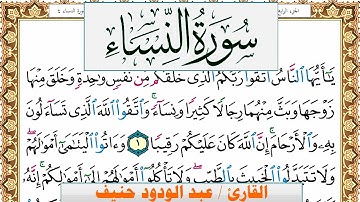 سُورَةُ النِّسَاءِ
يَٰٓأَيُّهَا ٱلنَّاسُ ٱتَّقُوا۟ رَبَّكُمُ ٱلَّذِى خَلَقَكُم مِّن نَّفْسٍ وَٰحِدَةٍ وَخَلَقَ مِنْهَا
زَوْجَهَا وَبَثَّ مِنْهُمَا رِجَالًا كَثِيرًا وَنِسَآءً ۚ وَٱتَّقُوا۟ ٱللَّهَ ٱلَّذِى تَسَآءَلُونَ
بِهِۦ وَٱلْأَرْحَامَ ۚ إِنَّ ٱللَّهَ كَانَ عَلَيْكُمْ رَقِيبًا ١ وَءَاتُوا۟ ٱلْيَتَٰمَىٰٓ أَمْوَٰلَهُمْ ۖ
وَلَا تَتَبَدَّلُوا۟ ٱلْخَبِيثَ بِٱلطَّيِّبِ ۖ وَلَا تَأْكُلُوٓا۟ أَمْوَٰلَهُمْ إِلَىٰٓ أَمْوَٰلِكُمْ ۚ إِنَّهُۥ
القارئ / عبد الودود حنيف